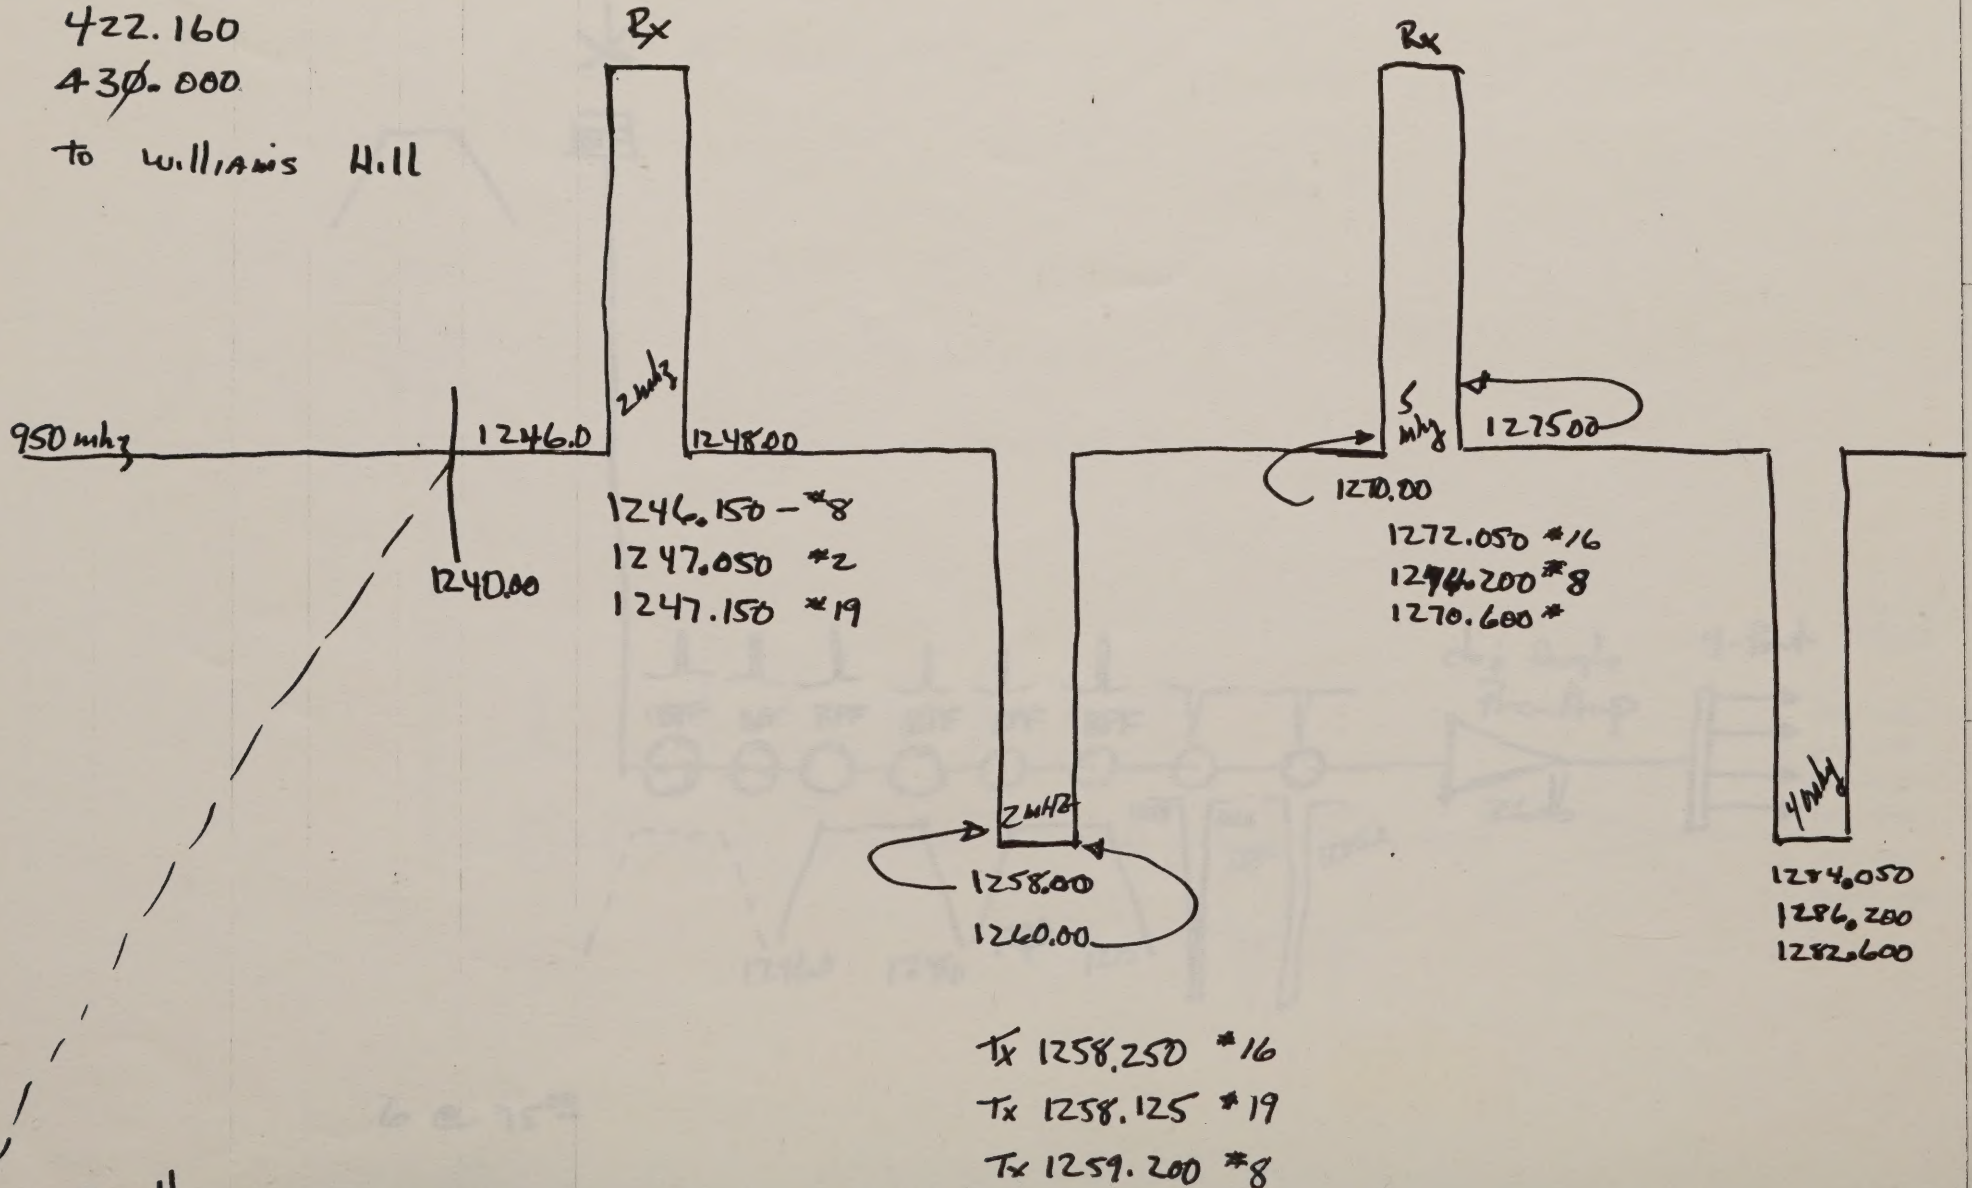 422.160
430.000
to Williams Hill
Rx
Rx
950 mhz
1246.0
2 mhz
1248.00
5 mhz
1275.00
1240.00
1270.00
1246.150 - #8
1247.050 #2
1247.150 #19
1272.050 #16
1274.200 #8
1270.600 #
2 mHz
1258.00
1260.00
4 mhz
1284.050
1286.200
1282.600
Tx 1258.250 #16
Tx 1258.125 #19
Tx 1259.200 #8